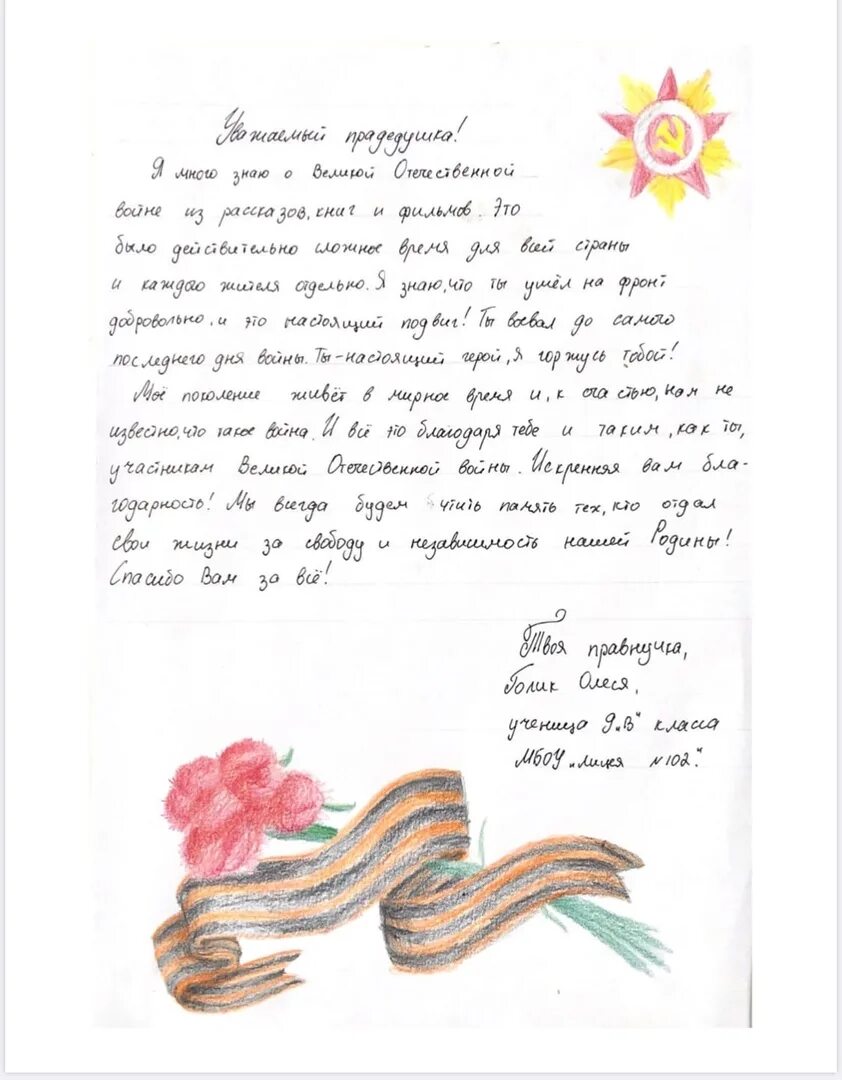 Уважаемый прадедушка!
Я много знаю о Великой Отечественной
войне из рассказов, книг и фильмов. Это
было действительно сложное время для всей страны
и каждого жителя отдельно. Я знаю, что ты ушёл на фронт
добровольно, и это настоящий подвиг! Ты воевал до самого
последнего дня войны. Ты - настоящий герой, я горжусь тобой!
Моё поколение живёт в мирное время и, к счастью, нам не
известно, что такое война. И всё это благодаря тебе и таким, как ты,
участникам Великой Отечественной войны. Искренняя вам бла-
годарность! Мы всегда будем чтить память тех, кто отдал
свои жизни за свободу и независимость нашей Родины!
Спасибо Вам за всё!
Твоя правнучка,
Голик Олеся,
ученица 9 „В" класса
МБОУ „лицея №102".